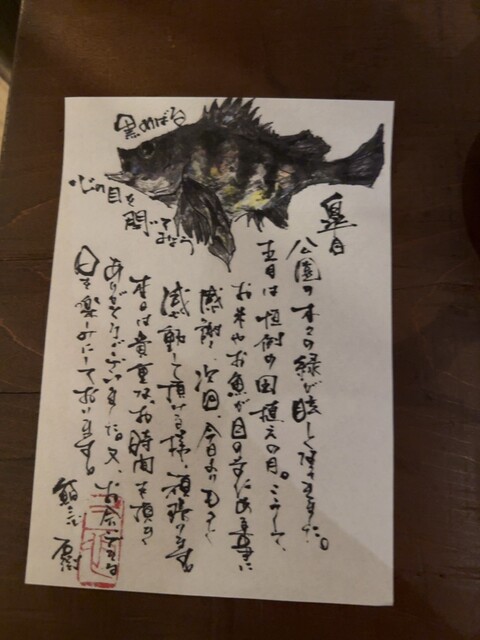 黒めばる
心の目を
開いて
みよう
皐月
公園の木々の緑が眩しく
五月は恒例の田植えの月。こうして、
お米やお魚が目の前にある事に
感謝し、次回、今日よりもっと
感動して頂ける様、頑張ります。
本日は貴重なお時間を頂き
ありがとうございました。又、お会いできる
日を楽しみにしております。